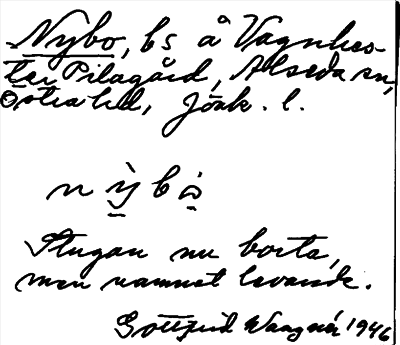 Nybo, bs å Vagnhes-
ter Pilagård, Alseda sn,
Östra hd, Jönk. l.
n ỳ b ȯ
Stugan nu borta,
men namnet levande.
Gottfrid Waagnér 1946